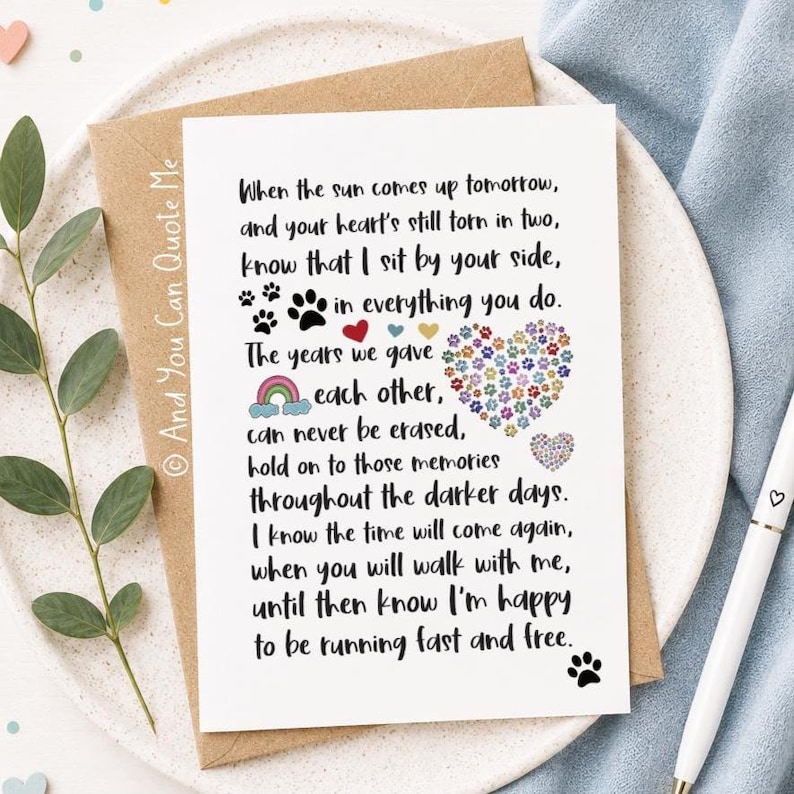 When the sun comes up tomorrow,
and your heart's still torn in two,
know that I sit by your side,
in everything you do.
The years we gave
each other,
can never be erased,
hold on to those memories
throughout the darker days.
I know the time will come again,
when you will walk with me,
until then know I'm happy
to be running fast and free.
© And You Can Quote Me